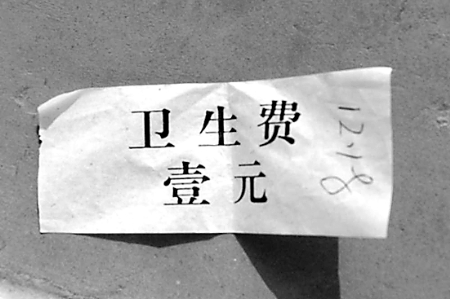 卫生费
壹元
12.18